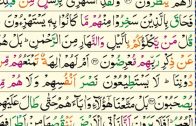 فَحَاقَ بِالَّذِينَ سَخِرُوا مِنْهُم مَّا كَانُوا بِهِ يَسْتَهْزِءُونَ
قُلْ مَن يَكْلَؤُكُم بِالَّيْلِ وَالنَّهَارِ مِنَ الرَّحْمَٰنِ بَلْ
عَن ذِكْرِ رَبِّهِم مُّعْرِضُونَ أَمْ لَهُمْ ءَالِهَةٌ تَمْنَعُهُم
دُونِنَا لَا يَسْتَطِيعُونَ نَصْرَ أَنفُسِهِمْ وَلَا هُم
يُصْحَبُونَ بَلْ مَتَّعْنَا هَٰؤُلَاءِ وَءَابَاءَهُمْ حَتَّىٰ طَالَ عَلَيْهِمُ